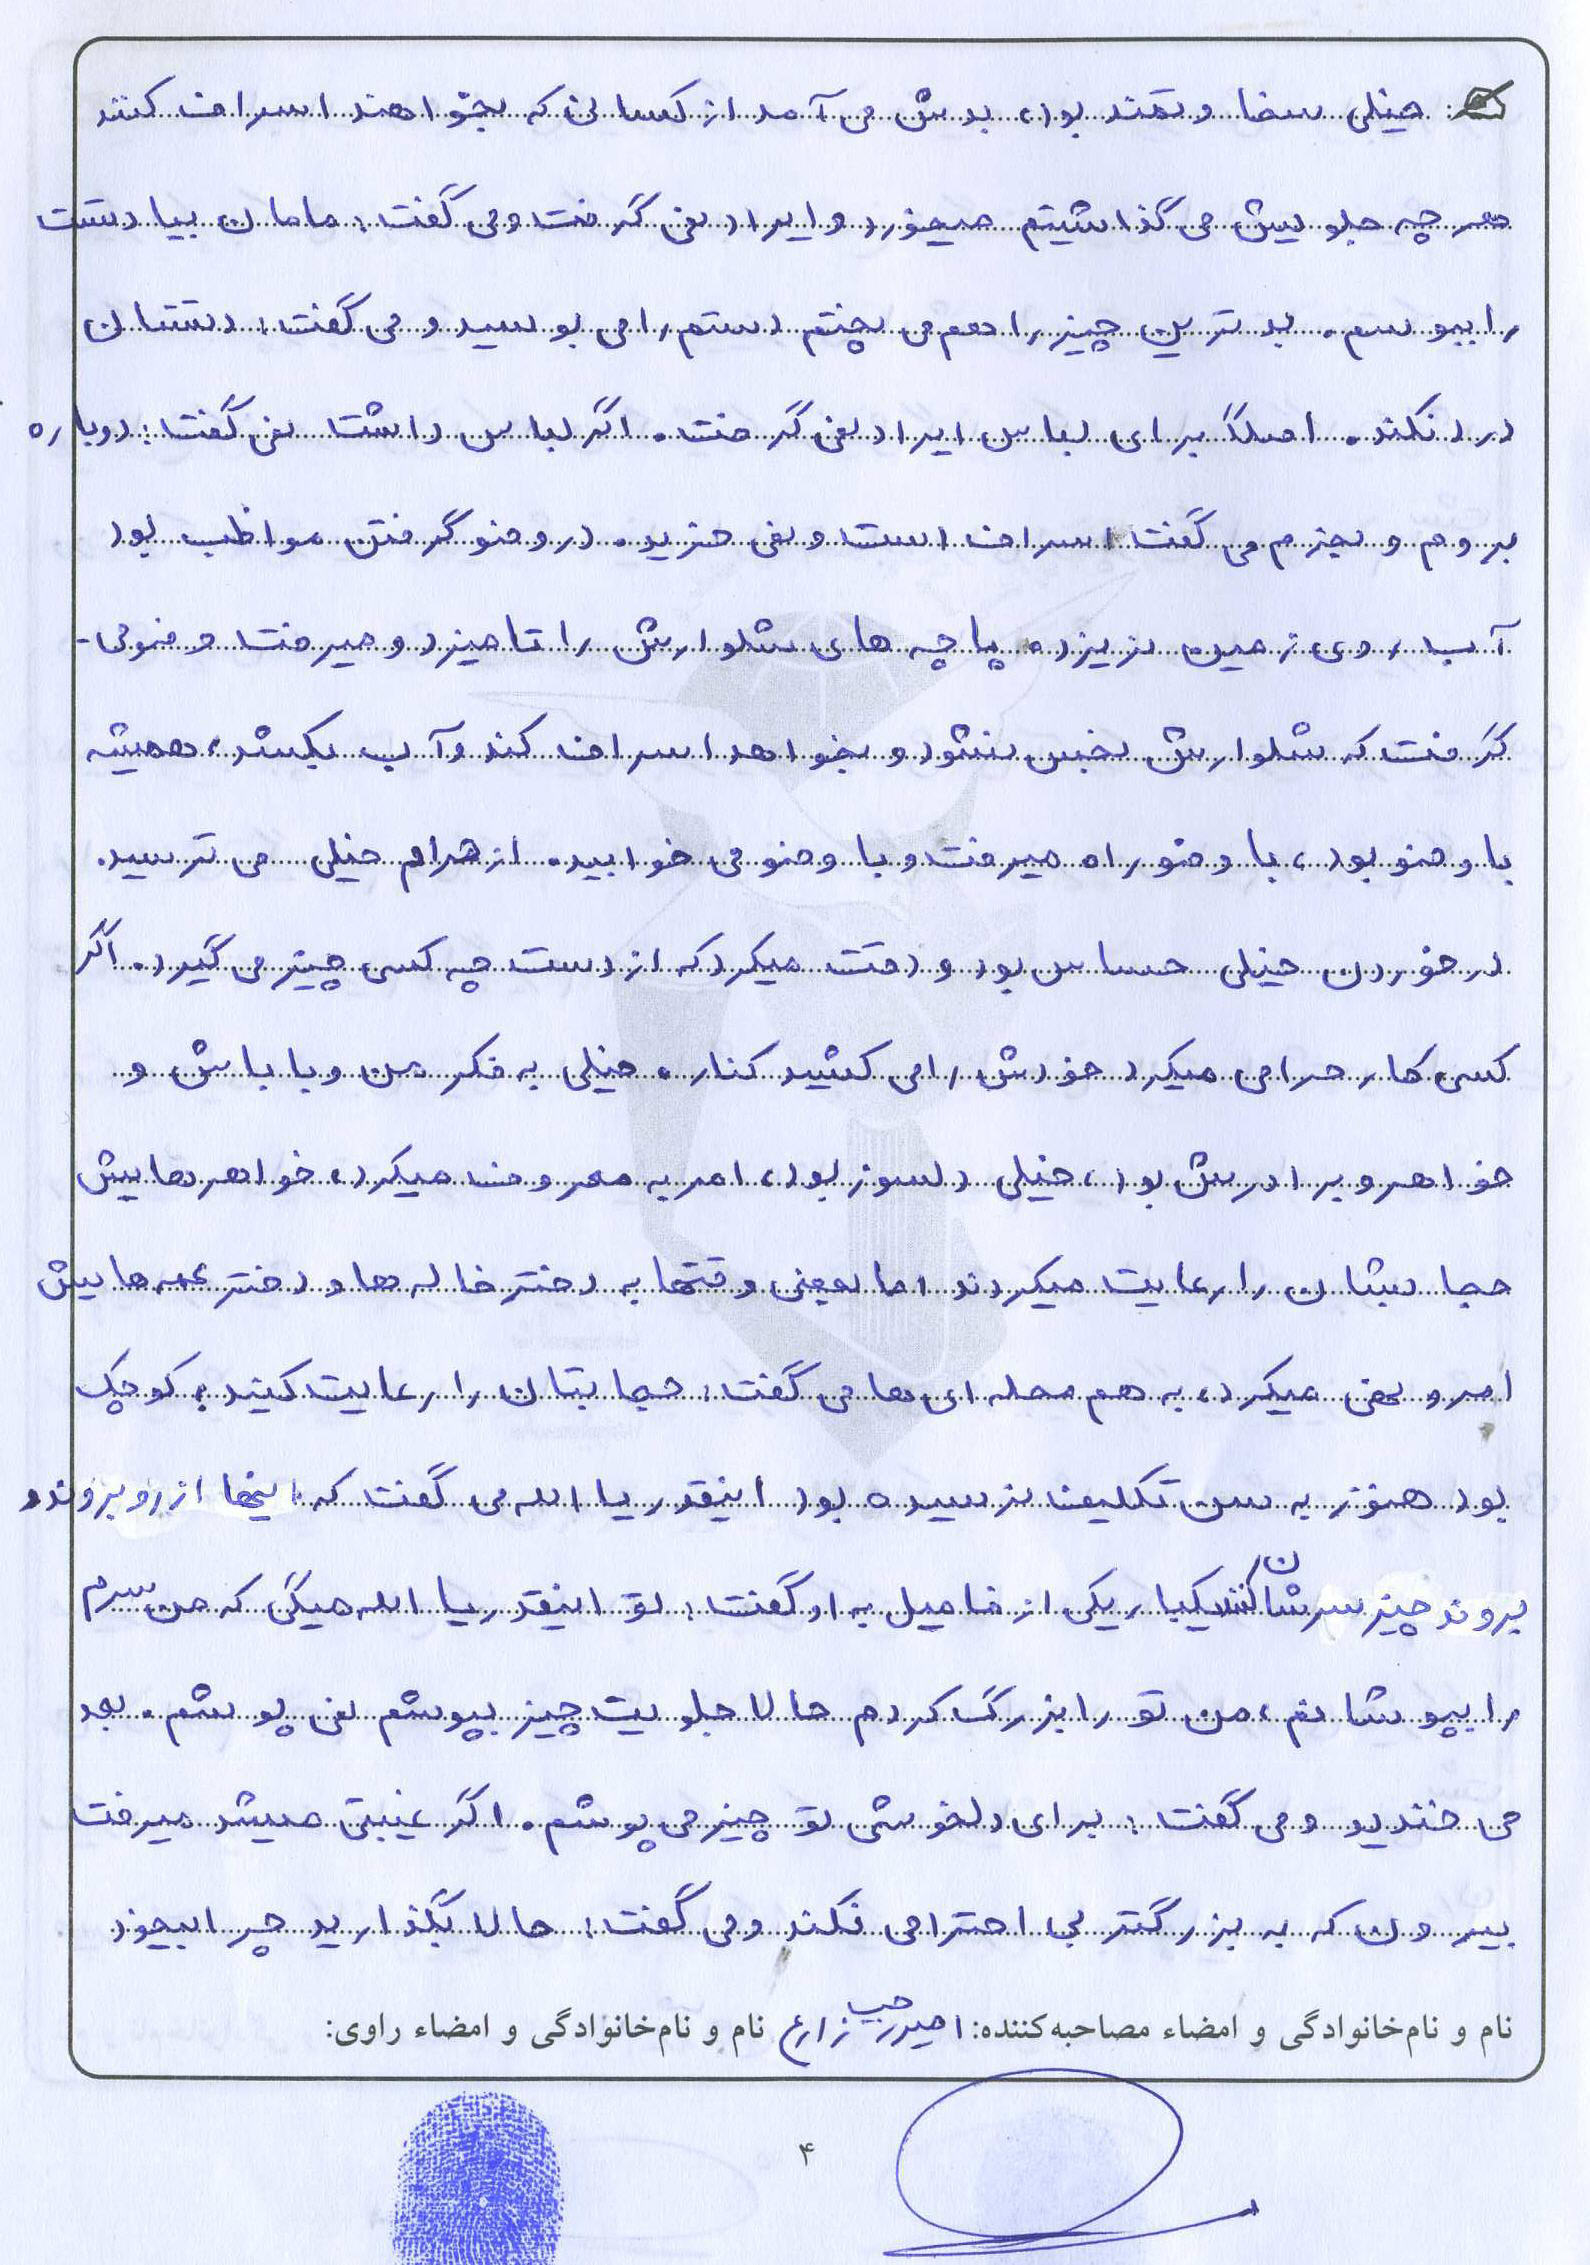 خیلی سخاوتمند بود، بدش می آمد از کسانی که بخواهند اسراف کنند
هر چه جلویش می گذاشتیم میخورد و ایراد نمی گرفت و می گفت: مامان بیا دستت
را ببوسم. بد ترین چیز را هم می پختم دستم را می بوسید و می گفت: دستتان
درد نکند. اصلاً برای لباس ایراد نمی گرفت. اگر لباس داشت نمی گفت: دوباره
بروم و بخرم می گفت اسراف است و نمی خرید. در وضو گرفتن مواظب بود
آب روی زمین نریزد. پاچه های شلوارش را تا میزد و میرفت وضو می-
گرفت که شلوارش نجس نشود و بخواهد اسراف کند و آب بکشد، همیشه
با وضو بود، با وضو راه میرفت و با وضو می خوابید. از هرام خیلی می ترسید.
در خوردن خیلی حساس بود و دقت میکرد که از دست چه کسی چیز می گیرد. اگر
کسی کار حرامی میکرد خودش را می کشید کنار. خیلی به فکر من و باباش و
خواهر و برادرش بود، خیلی دلسوز بود، امر به معروف میکرد، خواهرهایش
حجابشان را رعایت میکردند اما بعضی وقتها به دختر خاله ها و دختر عمه هایش
امر و نهی میکرد، به هم محله ای ها می گفت: حجابتان را رعایت کنید، کوچک
بود هنوز به سن تکلیف نرسیده بود اینقدر یا الله می گفت که اینها از رو بروند و
بروند چیز سرشان کنند یکبار یکی از فامیل به او گفت: تو اینقدر یا الله میگی که من سرم
را بپوشانم، من تو را بزرگ کردم حالا جلویت چیز بپوشم نمی پوشم. بعد
می خندید و می گفت: برای دلخوشی تو چیز می پوشم. اگر غیبتی میشد میرفت
بیرون که به بزرگتر بی احترامی نکند و می گفت: حالا بگذارید چرا بیخود
نام و نام‌خانوادگی و امضاء مصاحبه‌کننده: امیر رجب زارع نام و نام‌خانوادگی و امضاء راوی:
۴